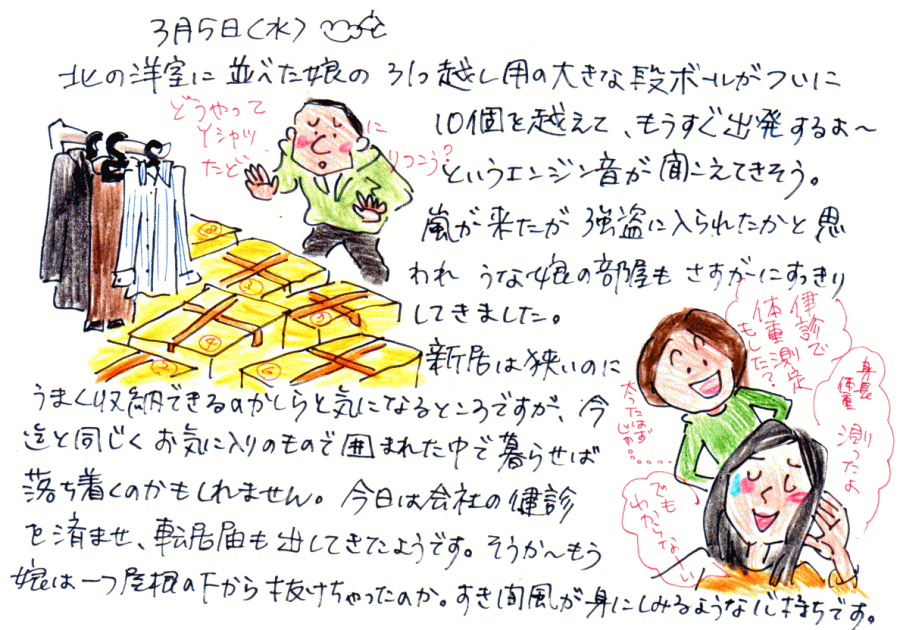 3月5日(水)
北の洋室に並べた娘の引っ越し用の大きな段ボールがついに
10個を越えて、もうすぐ出発するよ〜
というエンジン音が聞こえてきそう。
嵐が来たが強盗に入られたかと思
われうな娘の部屋もさすがにすっきり
してきました。
新居は狭いのに
うまく収納できるのかしらと気になるところですが、今
迄と同じくお気に入りのもので囲まれた中で暮らせば
落ち着くのかもしれません。今日は会社の健診
を済ませ、転居届も出してきたようです。そうか〜もう
娘は一つ屋根の下から抜けちゃったのか。すき間風が身にしみるような心持ちです。
どうやって
Yシャツに
たどりつこう?
8
3
5
4
2
6
健診で
体重測定
もした?
太ったはず
じゃ。。。。。。。
身長
体重
測ったよ
でも
わからな〜い